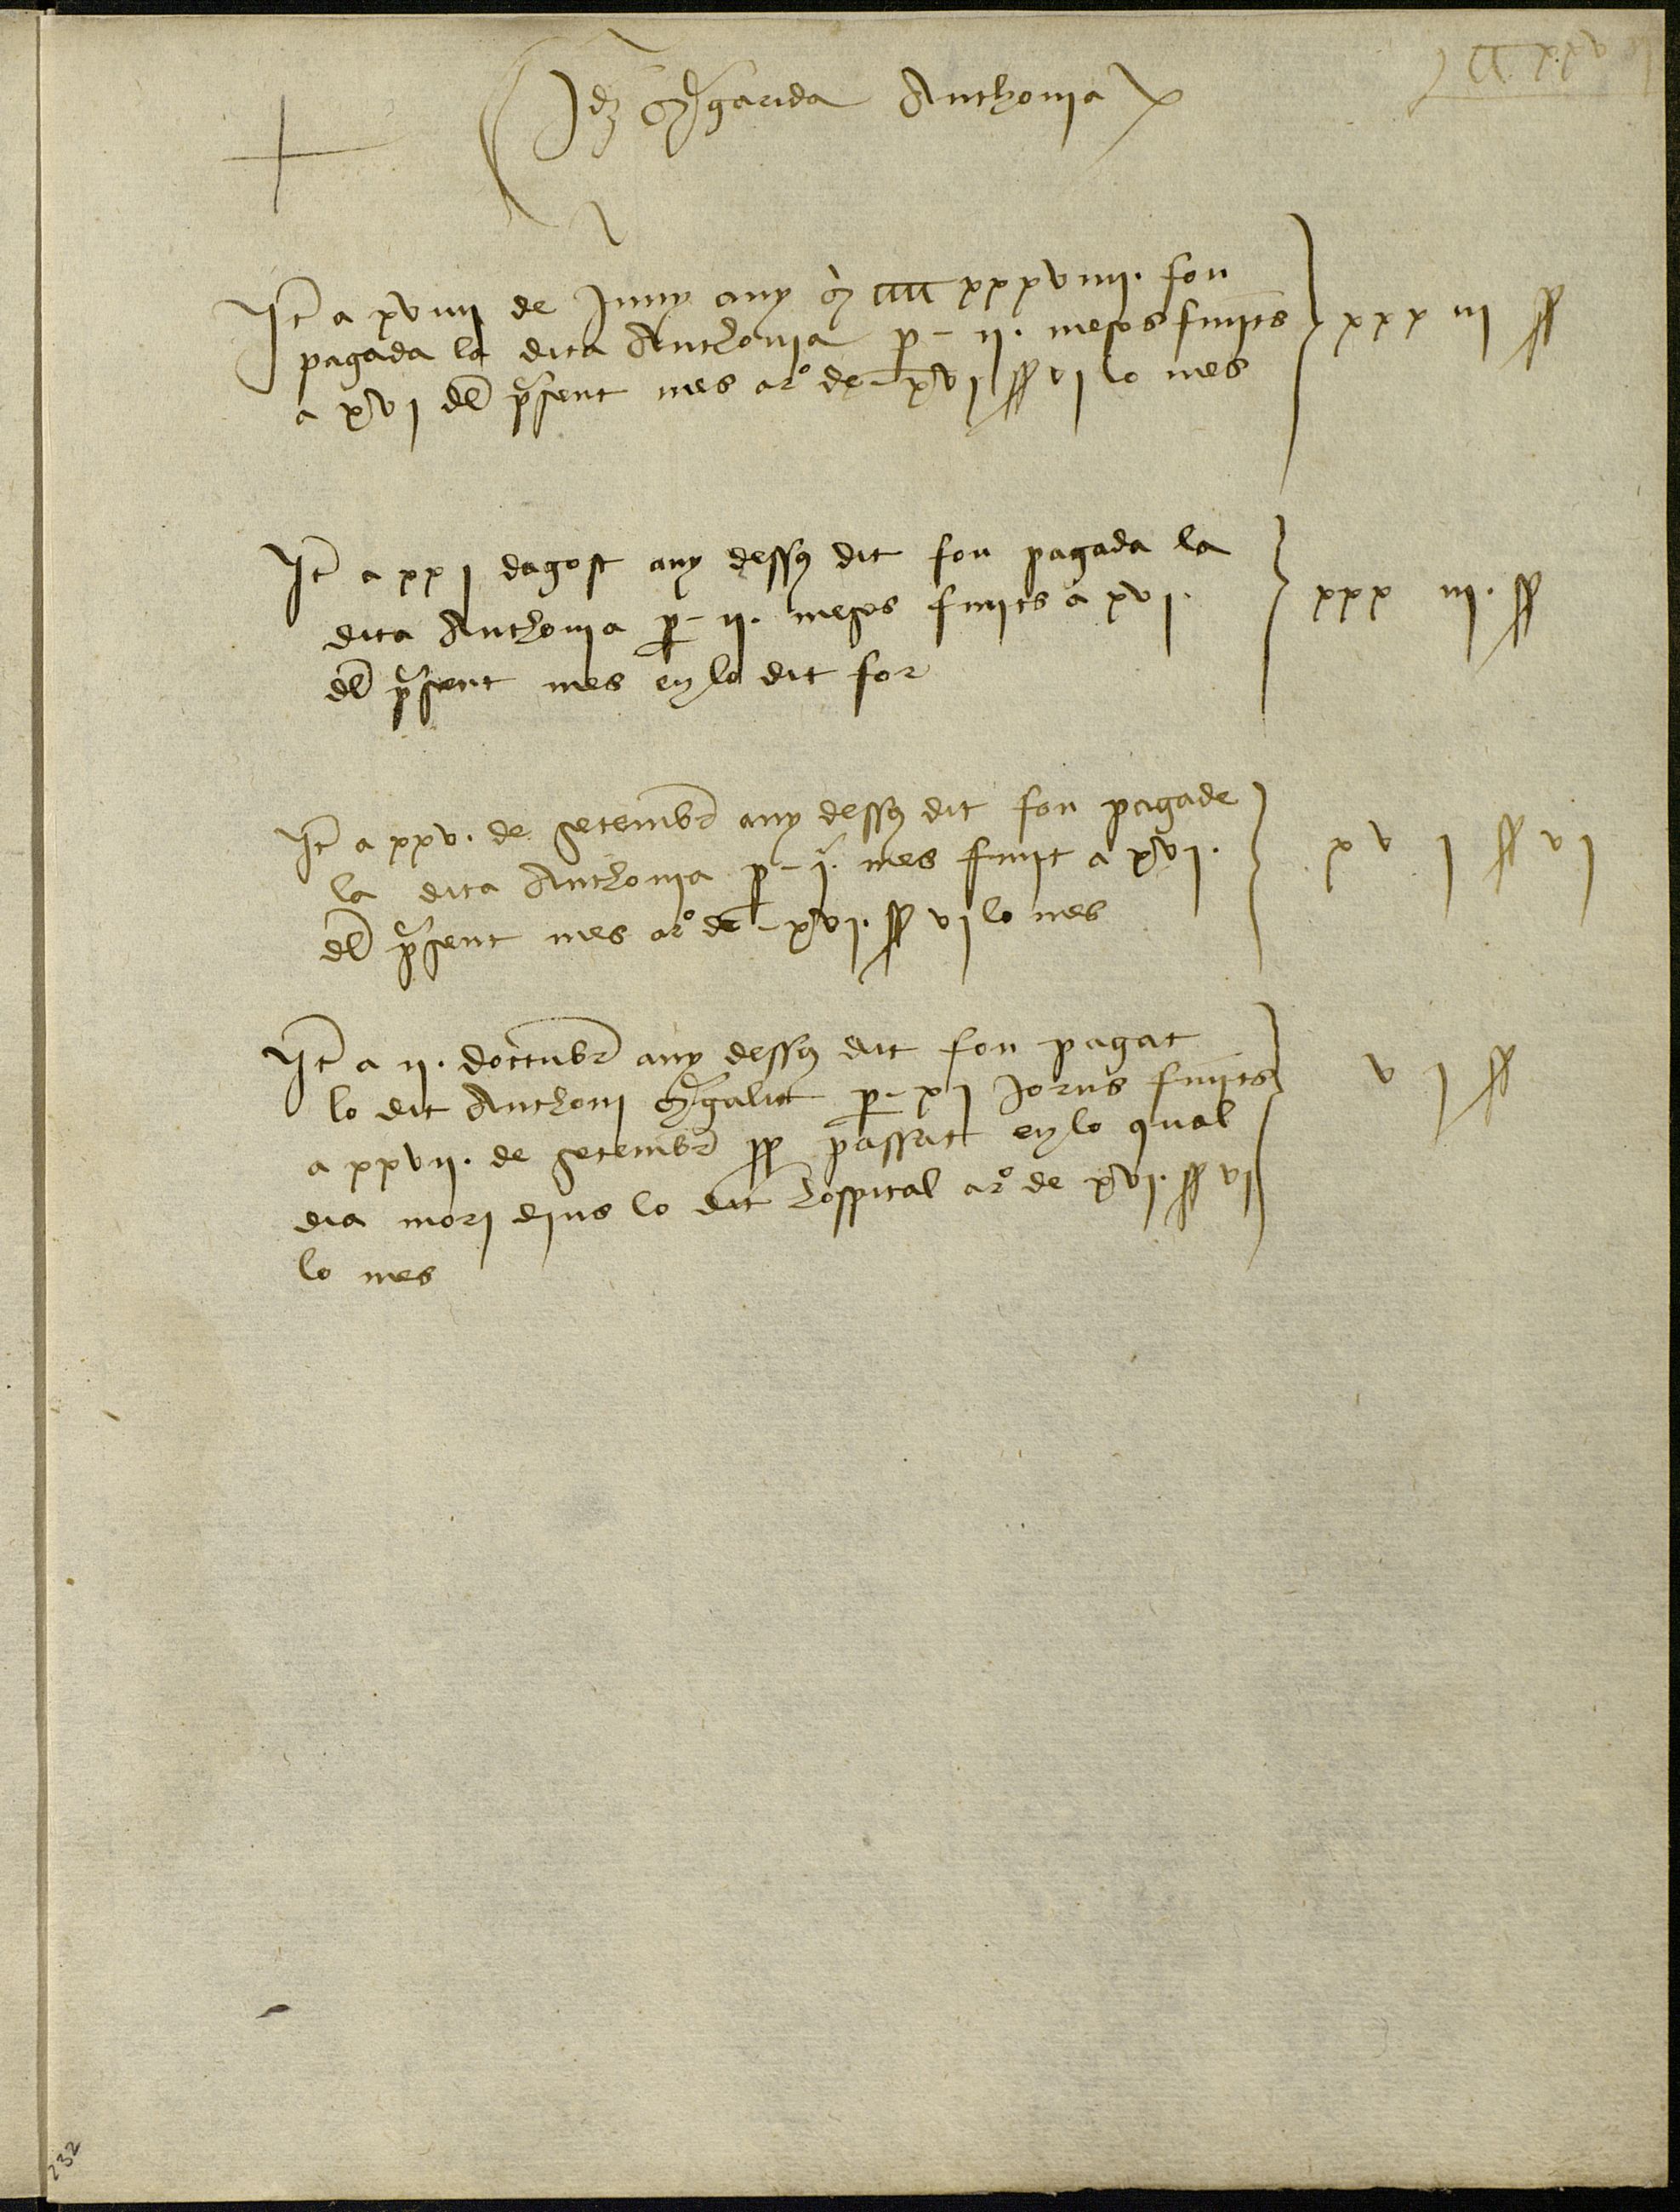 Idem Mgarida Anthonia
It a xviiii de Juny any M cccc xxxviiii. fon
pagada la dita Anthonia p - ii. mesos finits
a xvi del psent mes a ro de - xvi ss vi lo mes
xxx iii ss
It a xxi dagost any dessus dit fon pagada la
dita Anthonia p - ii. mesos finits a xvi.
del psent mes en lo dit for
xxx iii. ss
It a xxv. de setembr any dessus dit fon pagade
la dita Anthonia p - i. mes finit a xvi.
del psent mes a ro de - xvi. ss vi lo mes
xv i ss vi
It a ii. doctubr any dessus dit fon pagat
lo dit Anthoni Mgalit p - xi Jorns finits
a xxvii. de setembr pp passat en lo qual
dia mori dins lo dit hospital a ro de xvi. ss vi
lo mes
v i ss
232